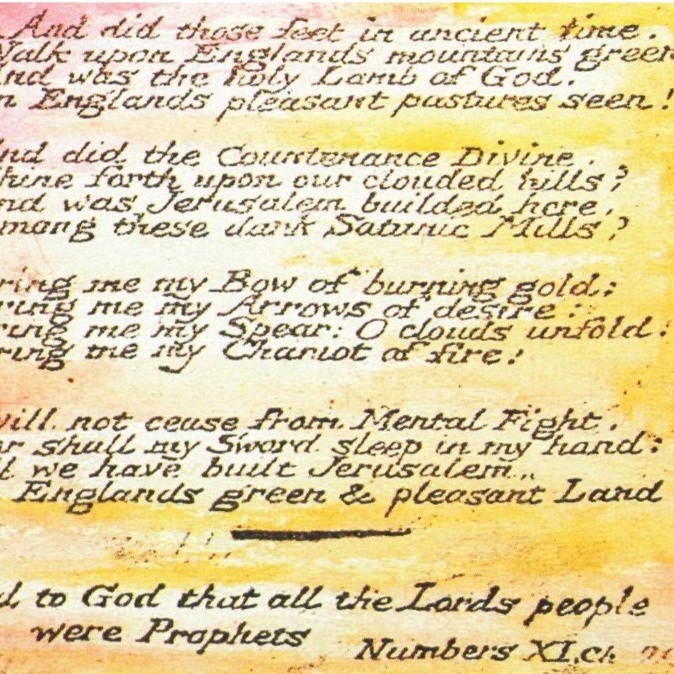 And did those feet in ancient time.
Walk upon Englands mountains green
nd was the holy Lamb of God.
n Englands pleasant pastures seen!
nd did the Countenance Divine.
hine forth upon our clouded hills?
nd was Jerusalem builded here,
mong these dark Satanic Mills?
ring me my Bow of burning gold:
ring me my Arrows of desire:
ring me my Spear: O clouds unfold:
ring me my Chariot of fire!
will not cease from Mental Fight.
or shall my Sword sleep in my hand:
l we have built Jerusalem,
Englands green & pleasant Land
d to God that all the Lords people
were Prophets Numbers XI.ch